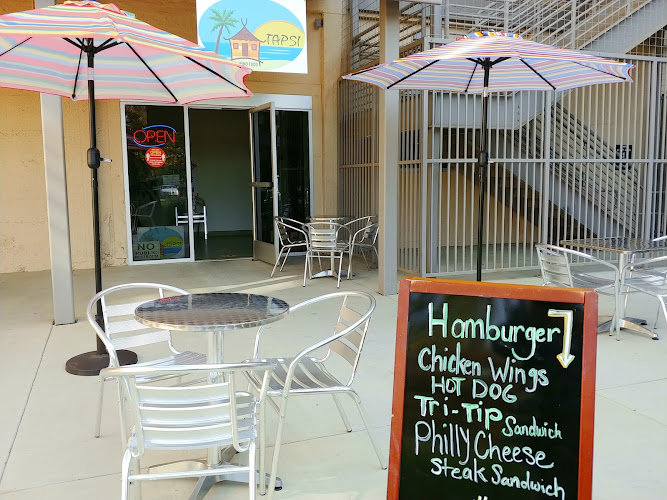 TAPSI
OPEN
NO
Hamburger
Chicken Wings
HOT DOG
Tri-Tip Sandwich
Philly Cheese
Steak Sandwich